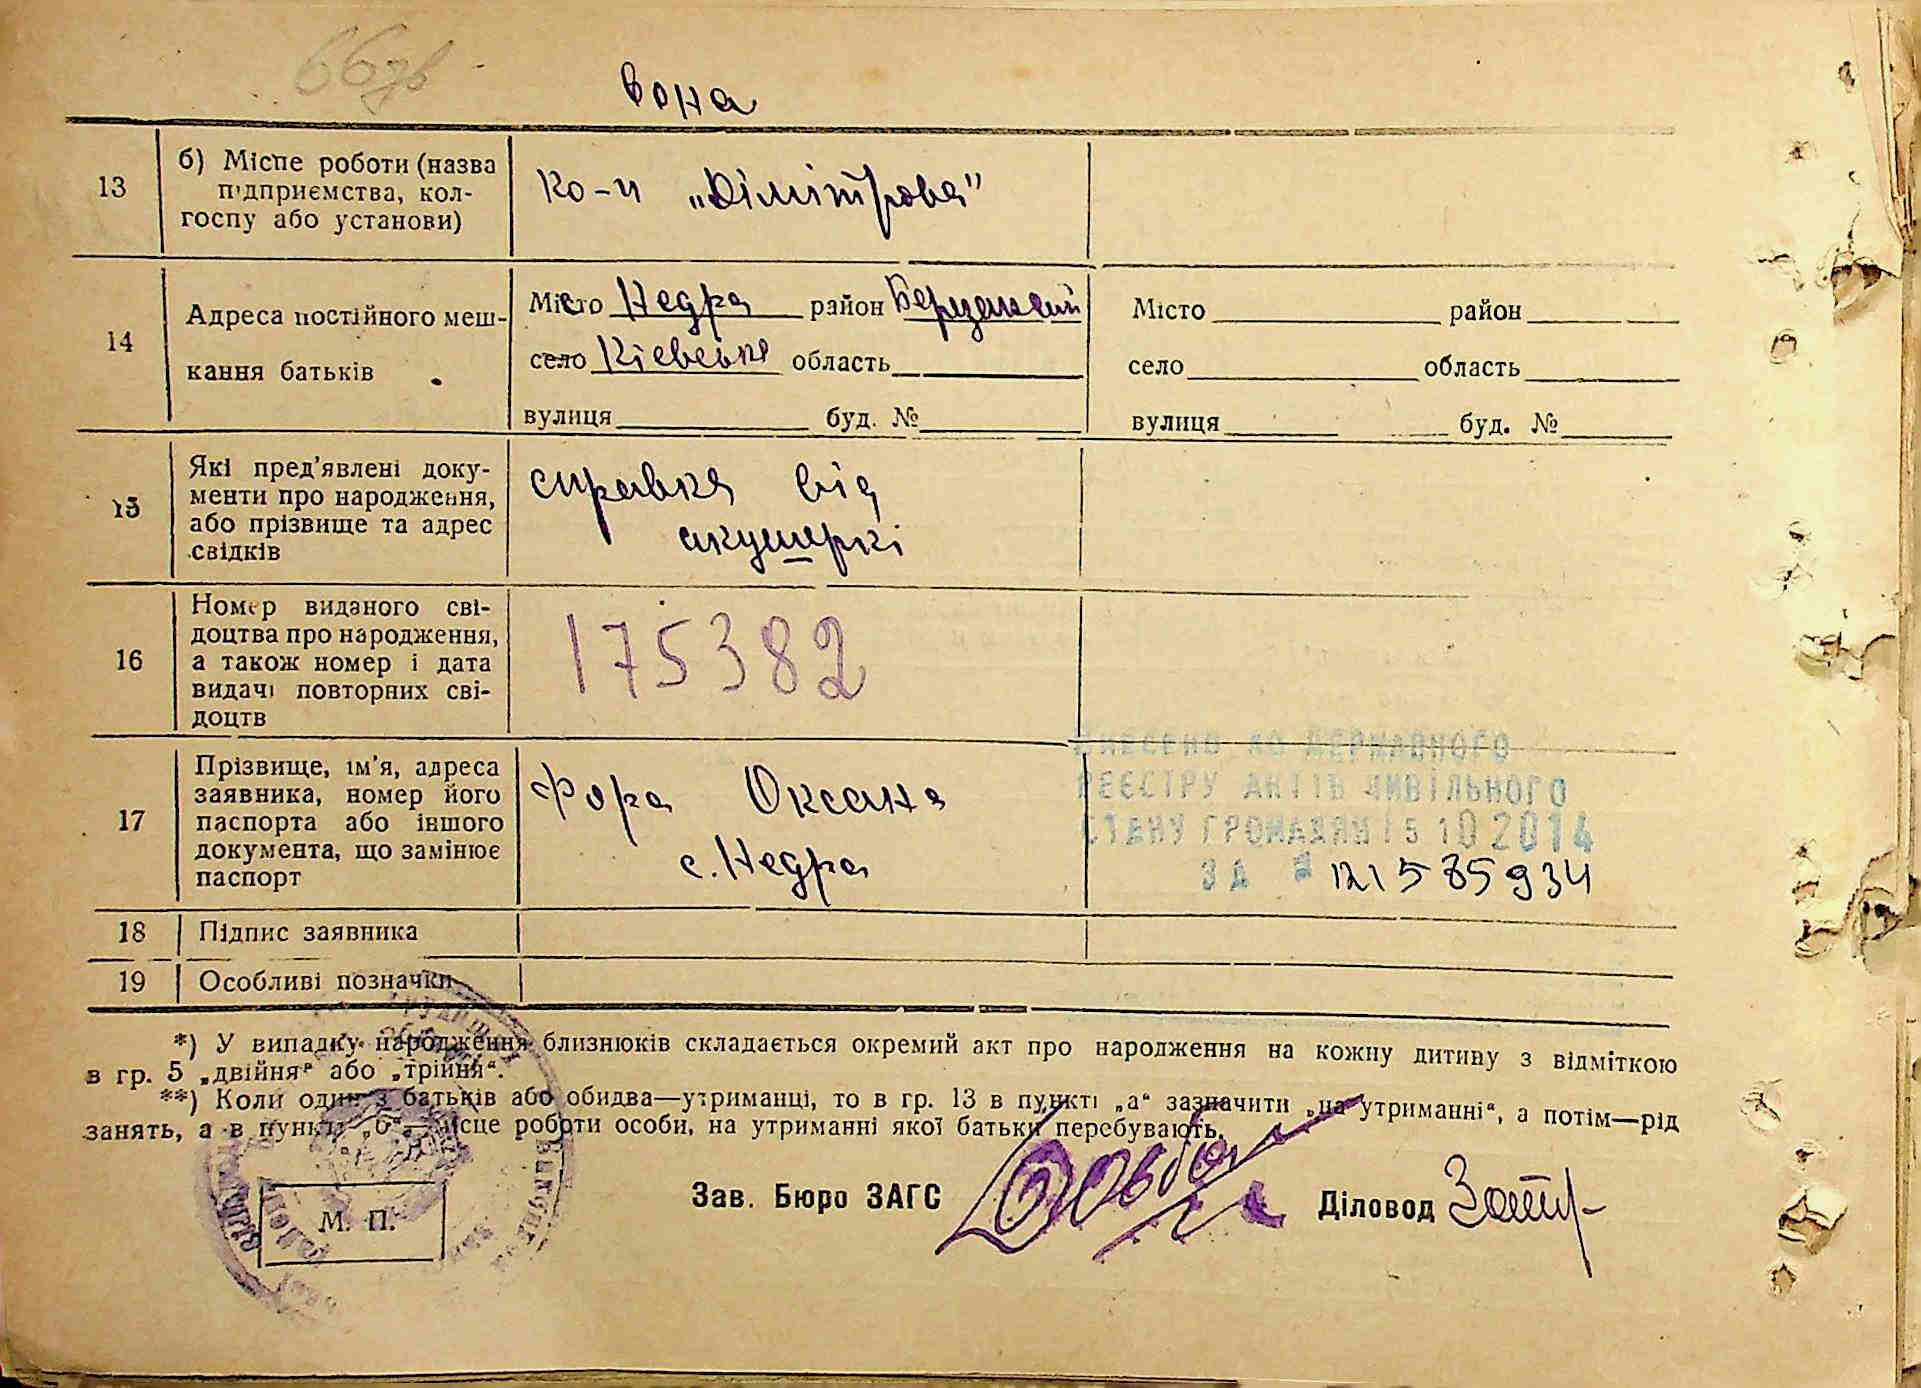 66зв
вона
13
б) Місце роботи (назва
підприємства, кол-
госпу або установи)
ко-п „Дімітрова"
14
Адреса постійного меш-
кання батьків
Місто Недра район Березанський
село Кієвська область
вулиця буд. №
Місто район
село область
вулиця буд. №
15
Які пред'явлені доку-
менти про народження,
або прізвище та адрес
свідків
справка від
акушеркі
16
Номер виданого сві-
доцтва про народження,
а також номер і дата
видачі повторних сві-
доцтв
175382
17
Прізвище, ім'я, адреса
заявника, номер його
паспорта або іншого
документа, що замінює
паспорт
Фора Оксана
с. Недра
ВНЕСЕНО ДО ДЕРЖАВНОГО
РЕЄСТРУ АКТІВ ЦИВІЛЬНОГО
СТАНУ ГРОМАДЯН 15 10 2014
ЗА №
18 Підпис заявника
19 Особливі позначки
*) У випадку народження близнюків складається окремий акт про народження на кожну дитину з відміткою
в гр. 5 „двійня“ або „трійня“.
**) Коли один з батьків або обидва—утриманці, то в гр. 13 в пункті „а“ зазначити „на утриманні“, а потім—рід
занять, а в пункті „б“—місце роботи особи, на утриманні якої батьки перебувають.
М. П.
Зав. Бюро ЗАГС
Діловод